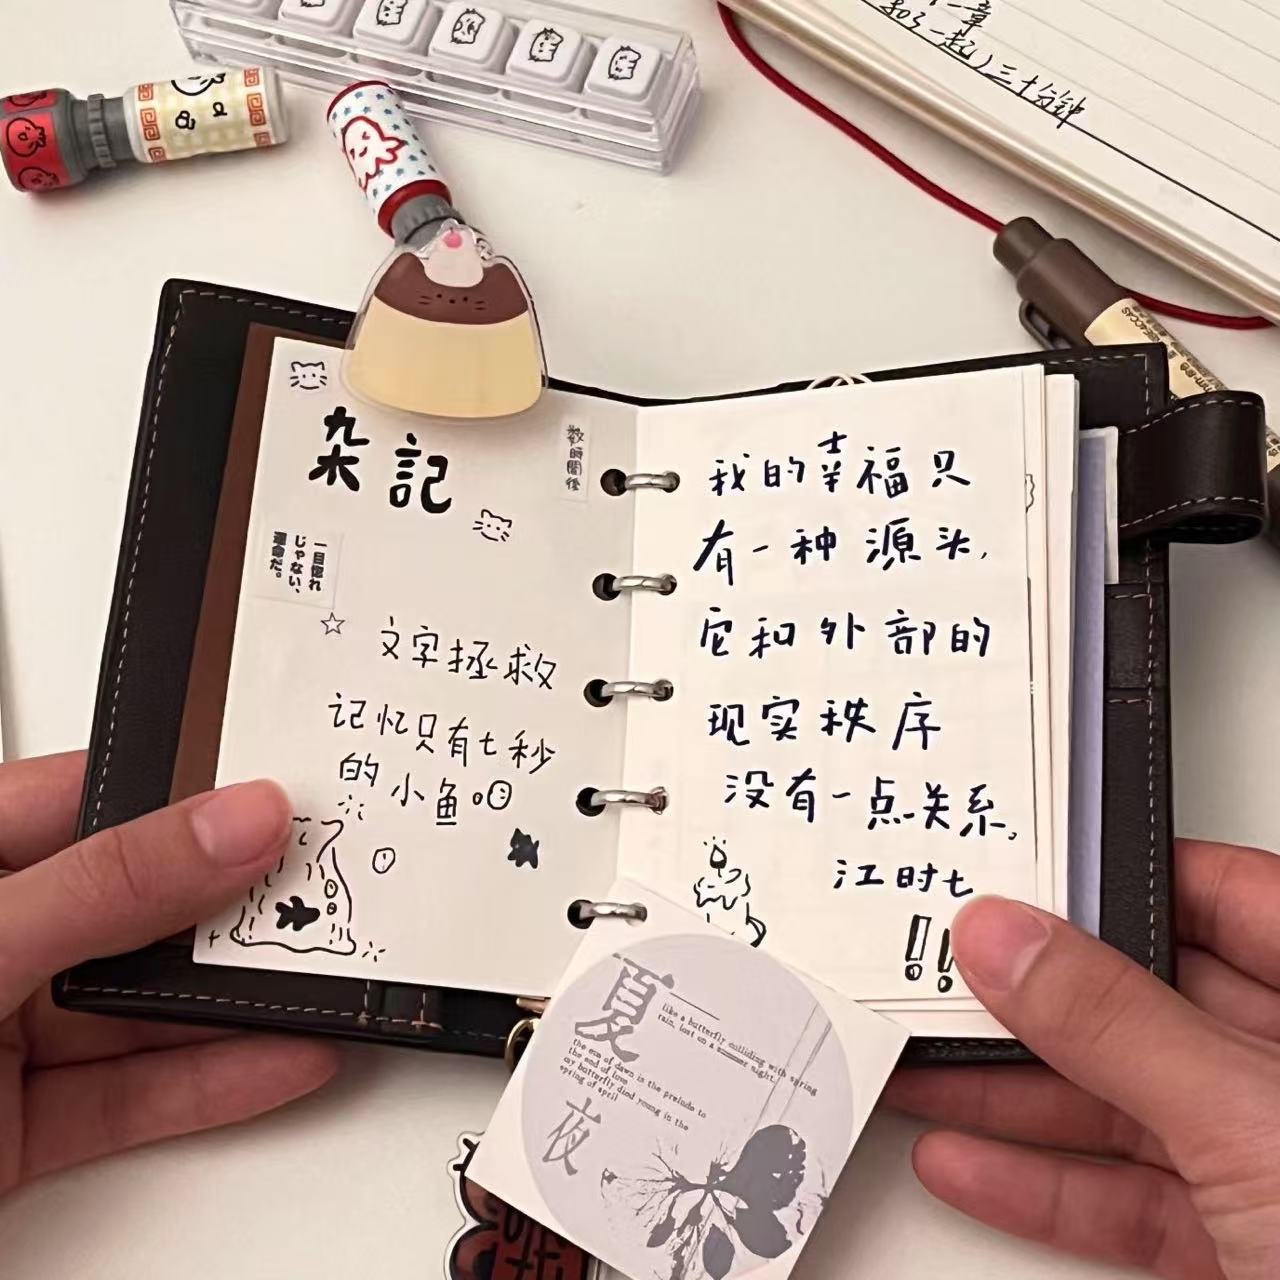 一章
一起)三十分钟
杂記
数時間後
一目惚れ
じゃない、
運命だ。
文字拯救
记忆只有七秒
的小鱼
我的幸福只
有一种源头,
它和外部的
现实秩序
没有一点关系。
江时七
!!
夏
夜
like a butterfly colliding with spring
rain, lost on a summer night.
the eve of dawn is the prelude to
the end of love
my butterfly died young in the
spring of april